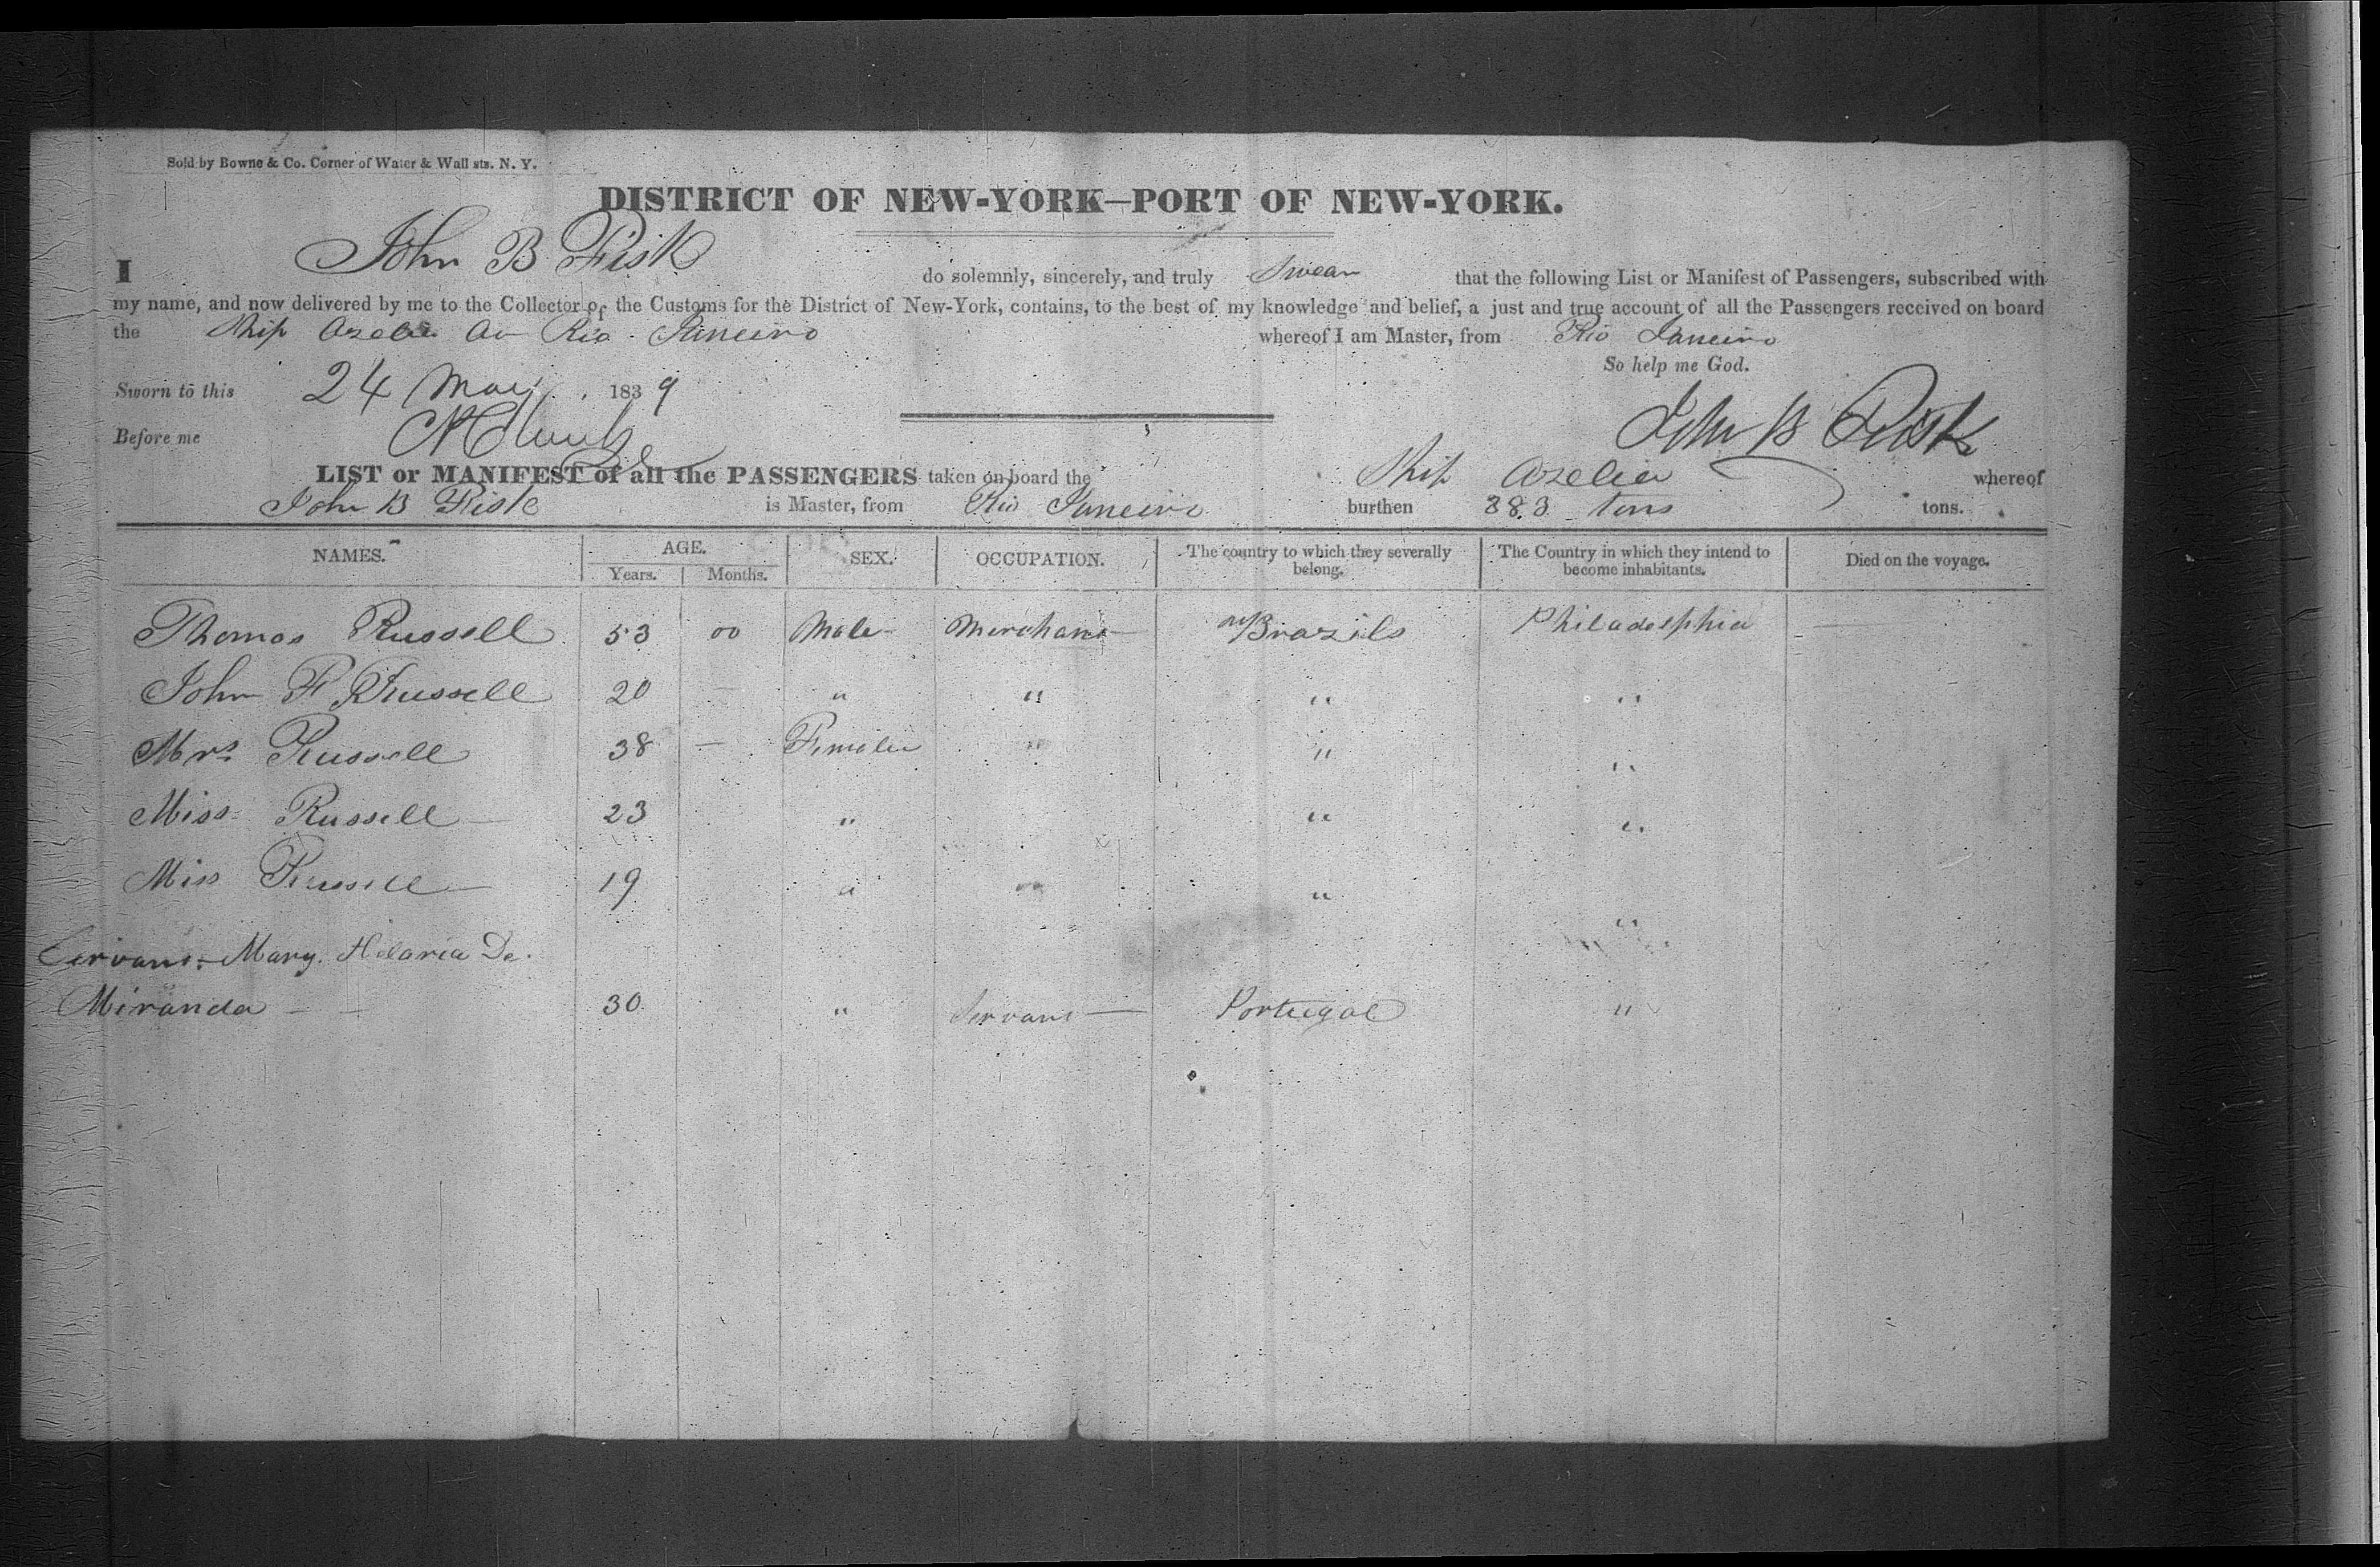 Sold by Bowne & Co. Corner of Water & Wall sts. N. Y.
DISTRICT OF NEW-YORK—PORT OF NEW-YORK.
I John B Fisk do solemnly, sincerely, and truly Swear that the following List or Manifest of Passengers, subscribed with
my name, and now delivered by me to the Collector of the Customs for the District of New-York, contains, to the best of my knowledge and belief, a just and true account of all the Passengers received on board
the Ship Azelia at Rio Janeiro whereof I am Master, from Rio Janeiro
So help me God.
Sworn to this 24 May 1839
Before me
John B Fisk
LIST or MANIFEST of all the PASSENGERS taken on board the Ship Azelia whereof
John B Fisk is Master, from Rio Janeiro burthen 383 tons tons.
NAMES. AGE. SEX. OCCUPATION. The country to which they severally belong. The Country in which they intend to become inhabitants. Died on the voyage.
Years. Months.
Thomas Russell 53 00 Male Merchant Brazils Philadelphia —
John F Russell 20 — " " " "
Mrs Russell 38 — Female " "
Miss Russell — 23 " " "
Miss Russell — 19 " " "
Servant. Mary. Hilaria De.
Miranda — — 30 " Servant — Portugal "